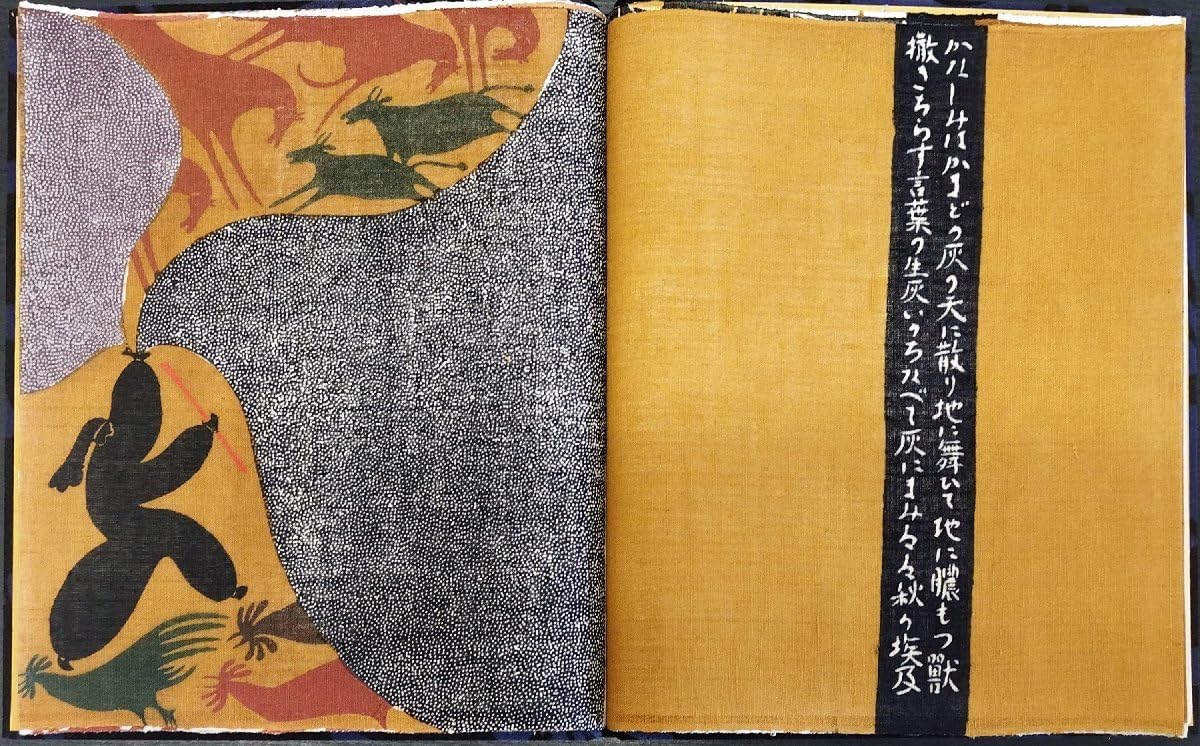 かなしみはかまどの灰の天に散り地に舞ひて地に膿もつ獣
撒きちらす言葉の生灰いのちなべて灰にまみるる秋の埃及